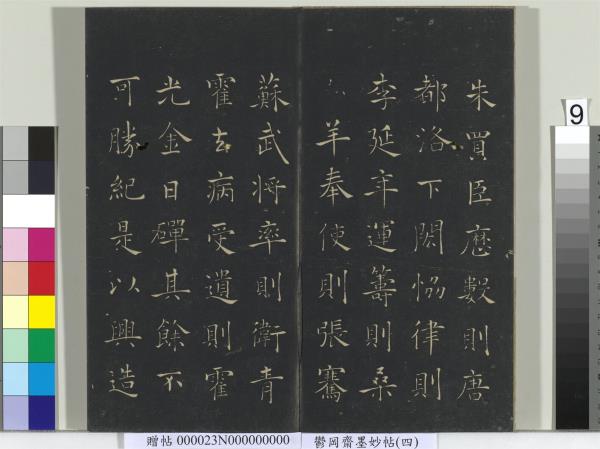 朱買臣歷數則唐
都洛下閎恊律則
李延年運籌則桑
羊奉使則張騫
蘇武將率則衛青
霍去病受遺則霍
光金日磾其餘不
可勝紀是以興造
9
贈帖 000023N000000000
鬱岡齋墨妙帖(四)